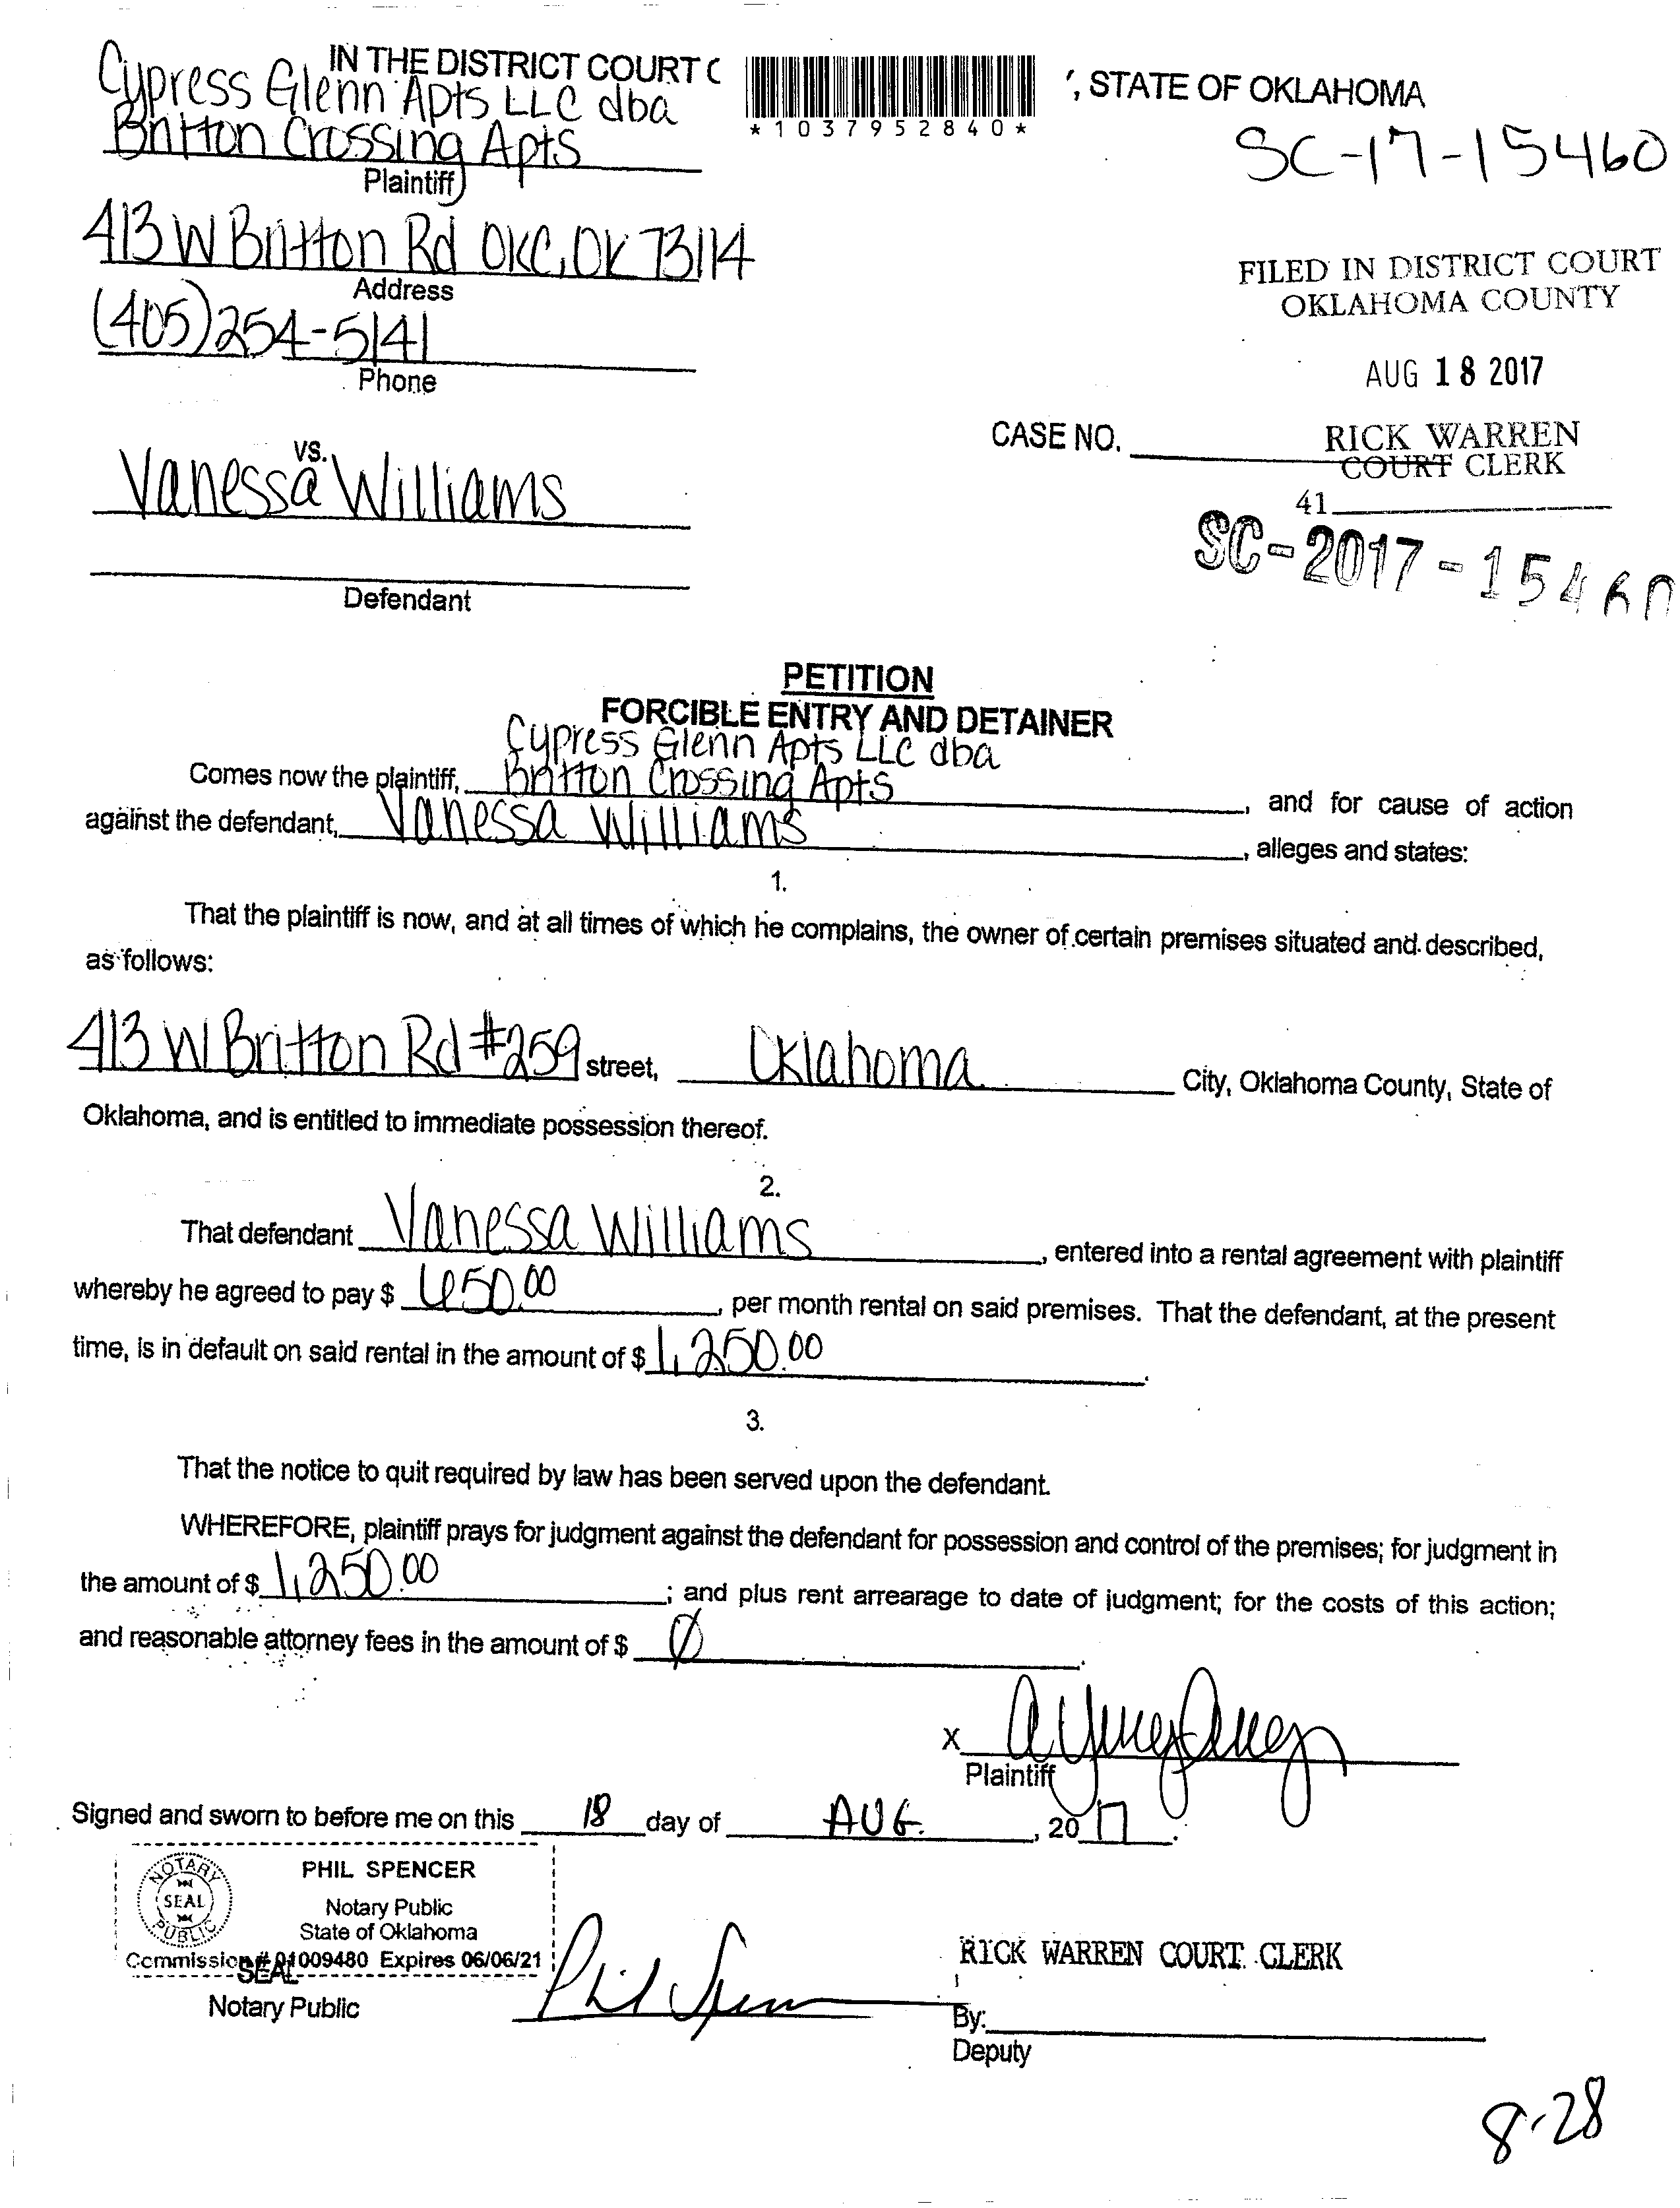 IN THE DISTRICT COURT
, STATE OF OKLAHOMA
*1037952840*
Cypress Glenn Apts LLC dba
Britton Crossing Apts
Plaintiff
SC-17-15460
413 W Britton Rd OKC, OK 73114
Address
(405)254-5141
Phone
FILED IN DISTRICT COURT
OKLAHOMA COUNTY
AUG 18 2017
RICK WARREN
COURT CLERK
41
CASE NO.
SC-2017-15460
vs.
Vanessa Williams
Defendant
PETITION
FORCIBLE ENTRY AND DETAINER
Cypress Glenn Apts LLC dba
Comes now the plaintiff, Britton Crossing Apts, and for cause of action
against the defendant, Vanessa Williams, alleges and states:
1.
That the plaintiff is now, and at all times of which he complains, the owner of certain premises situated and described,
as follows:
413 W Britton Rd #259 street, Oklahoma City, Oklahoma County, State of
Oklahoma, and is entitled to immediate possession thereof.
2.
That defendant Vanessa Williams, entered into a rental agreement with plaintiff
whereby he agreed to pay $ 650.00, per month rental on said premises. That the defendant, at the present
time, is in default on said rental in the amount of $ 1,250.00.
3.
That the notice to quit required by law has been served upon the defendant.
WHEREFORE, plaintiff prays for judgment against the defendant for possession and control of the premises; for judgment in
the amount of $ 1,250.00; and plus rent arrearage to date of judgment; for the costs of this action;
and reasonable attorney fees in the amount of $ Ø.
X
Plaintiff
Signed and sworn to before me on this 18 day of AUG., 2017.
NOTARY PUBLIC
SEAL
PHIL SPENCER
Notary Public
State of Oklahoma
Commission # 01009480 Expires 06/06/21
SEAL
Notary Public
Phil Spencer
RICK WARREN COURT CLERK
By:
Deputy
8-28